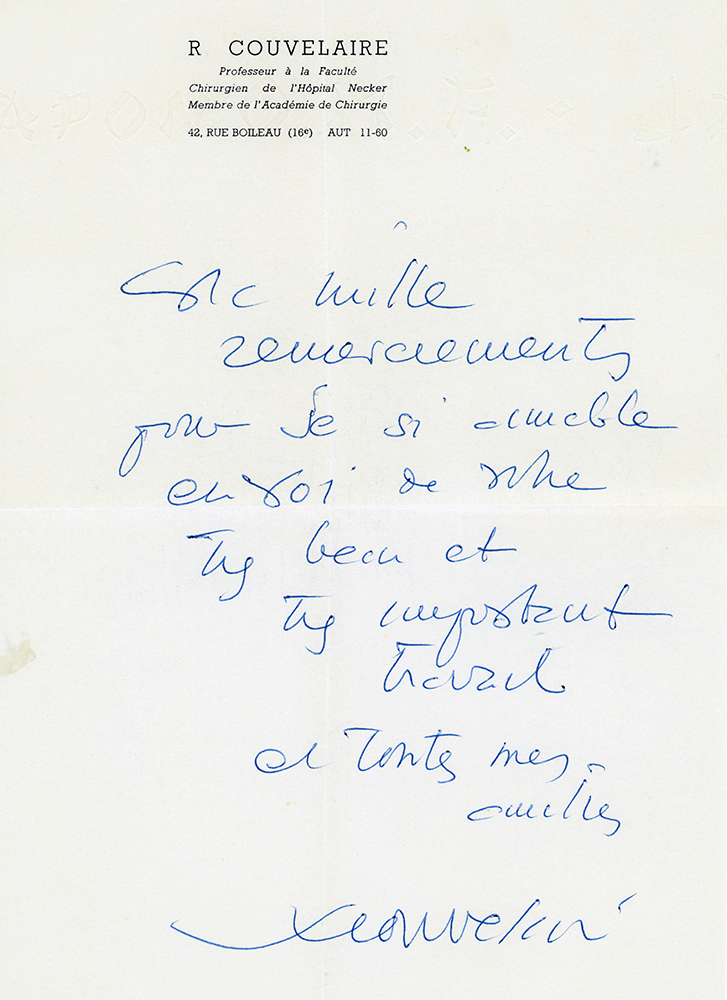 R COUVELAIRE
Professeur à la Faculté
Chirurgien de l'Hôpital Necker
Membre de l'Académie de Chirurgie
42, RUE BOILEAU (16e) AUT 11-60
mille
remerciements
pour le si aimable
envoi de votre
très beau et
très important
travail
et toutes mes
amitiés
R Couvelaire